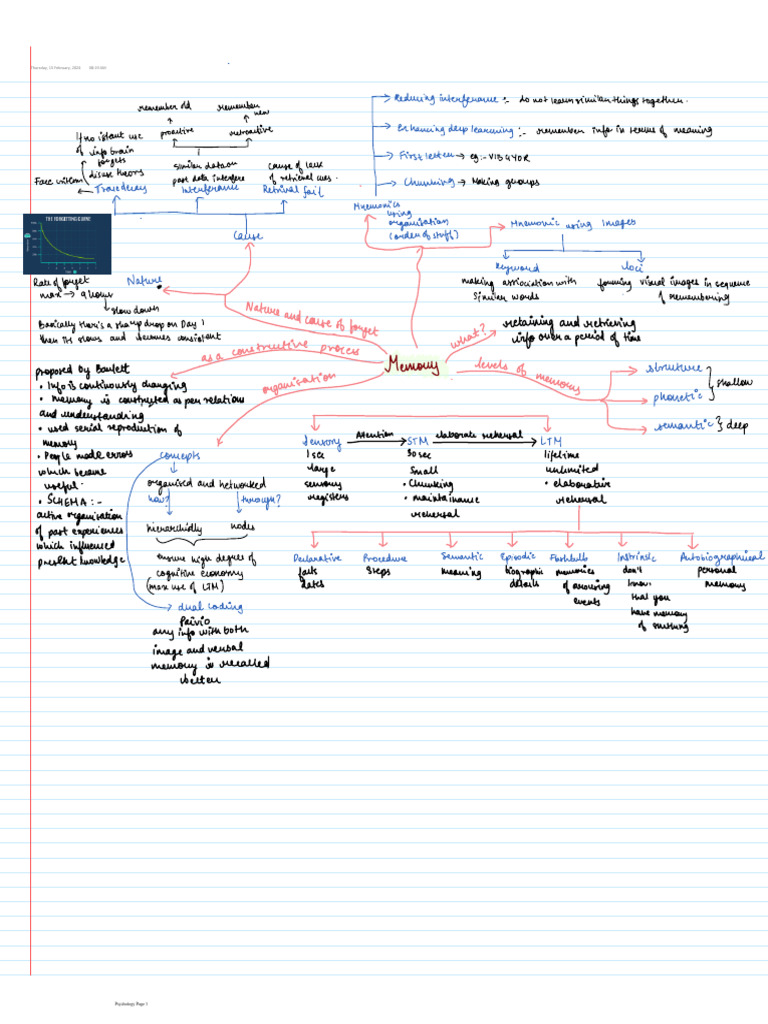 Thursday, 15 February, 2024
remember old
remember new
proactive
retroactive
if no instant use
of info brain
forgets
disuse theory
similar data or
past data interfere
cause of lack
of retrieval cues.
Trace decay
Interference
Retrival fail
cause
THE FORGETTING CURVE
Rate of forget
max → 9 hours
slow down
Basically there's a sharp drop on Day 1
then its slows and becomes consistent
Nature
Nature and cause of forget
Reducing interference :- do not learn similar things together.
Enhancing deep learning :- remember info in terms of meaning
First letter → eg:- VIBGYOR
Chunking → Making groups
Mnemonics
using
organisation
(order of stuff)
Mnemonic using Images
keyword
loci
making association with
similar words
forming visual images in sequence
of remembering
Memory
what?
retaining and retrieving
info over a period of time
levels of memory
structure
phonetic
shallow
semantic
deep
as a constructive process
proposed by Bartlett
• Info is continously changing
• memory is constructed as per relations
and understanding
• used serial reproduction of
memory
• People made errors
which became
useful.
• SCHEMA :-
active organisation
of past experiences
which influenced
present knowledge
organisation
concepts
organised and networked
how?
through?
nodes
ensure high degree of
cognitive economy
(max use of LTM)
dual coding
Paivio
any info with both
image and verbal
memory is recalled
better
Sensory
Attention
STM
elaborate rehersal
LTM
1 sec
large
sensory
registers
30 sec
small
• Chunking
• maintainance
rehersal
lifetime
unlimited
• elaborative
rehersal
Declarative
facts
dates
Procedure
steps
Semantic
meaning
Episodic
biographic
details
Flashbulb
memories
of arousing
events
Instrinsic
don't
know
that you
have memory
of smthing
Autobiographical
personal
memory
Psychology Page 1